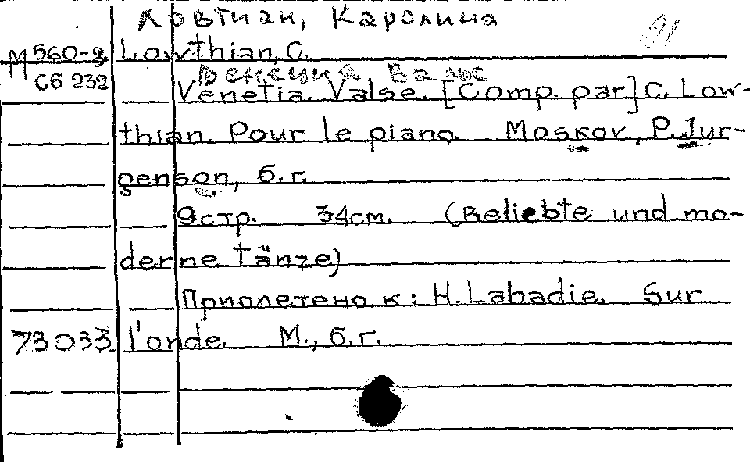 Ловтиан, Каролина
М 560-9 Lowthian, C.
Сб 232 Венеция Вальс
Venetia. Valse. [Comp. par] C. Low-
thian. Pour le piano. Moskov, P. Jur-
genson, б.г.
9 стр. 34 см. (Beliebte und mo-
derne Tänze)
Приплетено к: H. Labadie. Sur
73033 l'onde. М., б.г.